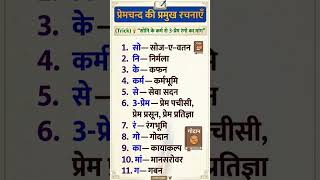 प्रेमचन्द की प्रमुख रचनाएँ
(Trick) "सोनि के कर्म से 3-प्रेम रंगो का मांग"
1. सो — सोज-ए-वतन
2. नि — निर्मला
3. के — कफन
4. कर्म — कर्मभूमि
5. से — सेवा सदन
6. 3-प्रेम — प्रेम पचीसी,
प्रेम प्रसून, प्रेम प्रतिज्ञा
7. रं — रंगभूमि
8. गो — गोदान
9. का — कायाकल्प
10. मां — मानसरोवर
11. ग — गबन
गोदान